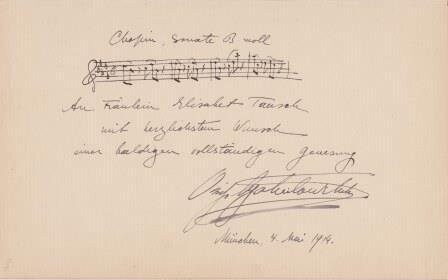 Chopin, Sonate B moll
An Fräulein Elisabet Tausch
mit herzlichstem Wunsch
einer baldigen vollständigen Genesung
Ossip Gabrilowitsch
München, 4. Mai 1914.